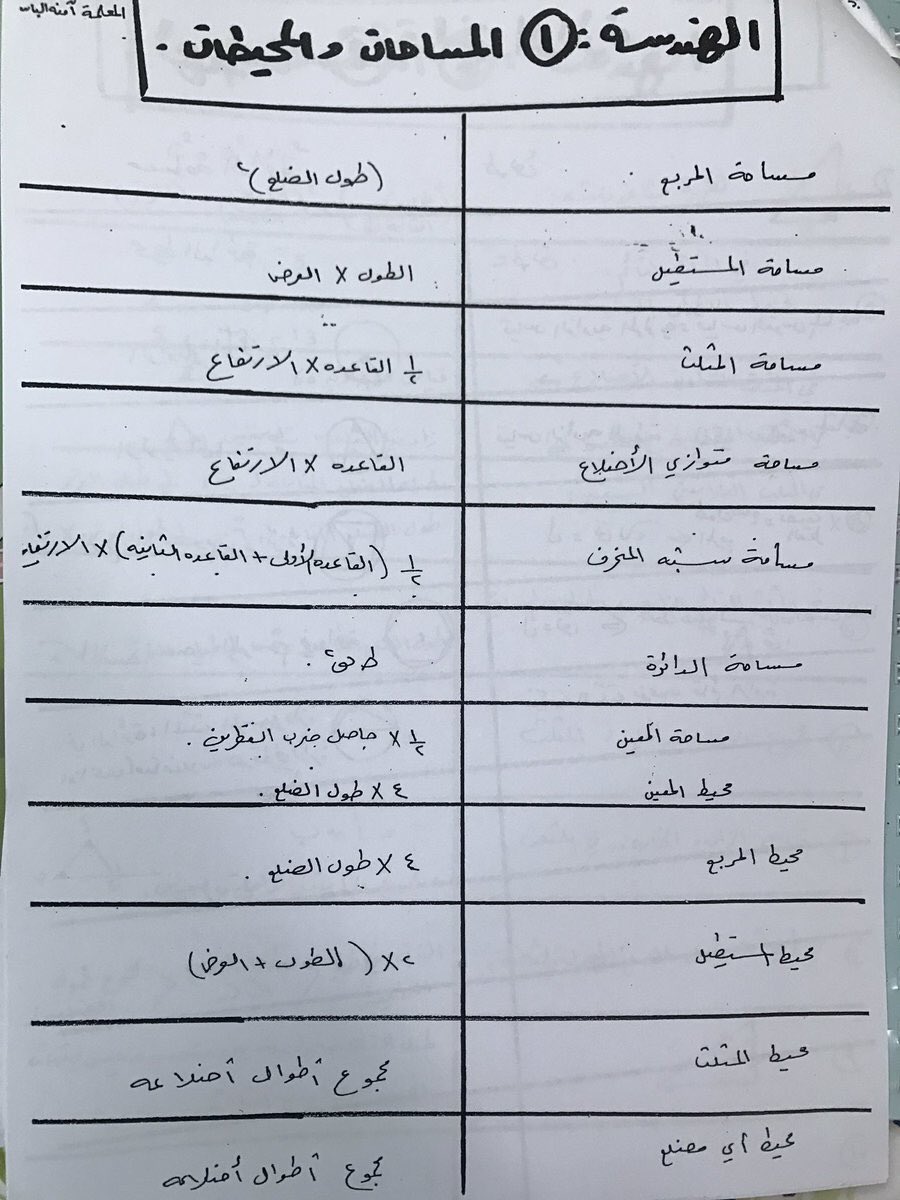 المعلمة آمنه
الهندسة : ① المساحات والمحيطات .
مساحة المربع : (طول الضلع)²
مساحة المستطيل : الطول × العرض
مساحة المثلث ½ القاعده × الارتفاع
مساحة متوازي الأضلاع القاعده × الارتفاع
مساحة شبه المنحرف ½ (القاعده الأولى + القاعده الثانيه) × الارتفاع
مساحة الدائرة ط نق² .
مساحة المعين ½ × حاصل ضرب القطرين .
محيط المعين ٤ × طول الضلع .
محيط المربع ٤ × طول الضلع .
محيط المستطيل ٢ × (الطول + العرض)
محيط المثلث مجموع أطوال أضلاعه
محيط أي مضلع مجموع أطوال أضلاعه